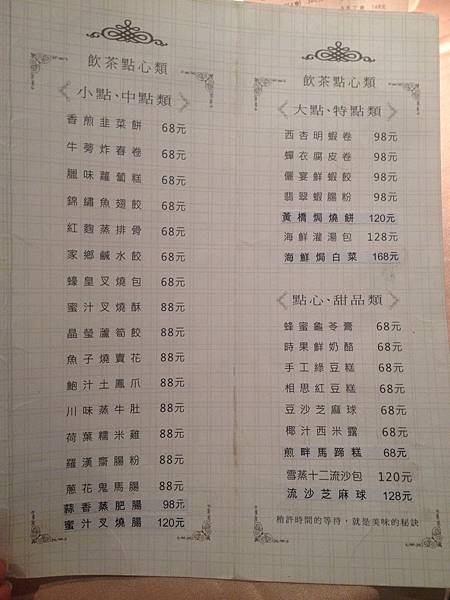 飲茶點心類
小點、中點類
香煎韭菜餅 68元
牛蒡炸春卷 68元
臘味蘿蔔糕 68元
錦繡魚翅餃 68元
紅麴蒸排骨 68元
家鄉鹹水餃 68元
蠔皇叉燒包 68元
蜜汁叉燒酥 88元
晶瑩蘆筍餃 88元
魚子燒賣花 88元
鮑汁土鳳爪 88元
川味蒸牛肚 88元
荷葉糯米雞 88元
羅漢齋腸粉 88元
蔥花鬼馬腸 88元
蒜香蒸肥腸 98元
蜜汁叉燒腸 120元
飲茶點心類
大點、特點類
西杏明蝦卷 98元
蟬衣腐皮卷 98元
儷宴鮮蝦餃 98元
翡翠蝦腸粉 98元
黃橋焗燒餅 120元
海鮮灌湯包 128元
海鮮焗白菜 168元
點心、甜品類
蜂蜜龜苓膏 68元
時果鮮奶酪 68元
手工綠豆糕 68元
相思紅豆糕 68元
豆沙芝麻球 68元
椰汁西米露 68元
煎畔馬蹄糕 68元
雪蒸十二流沙包 120元
流沙芝麻球 128元
稍許時間的等待，就是美味的秘訣